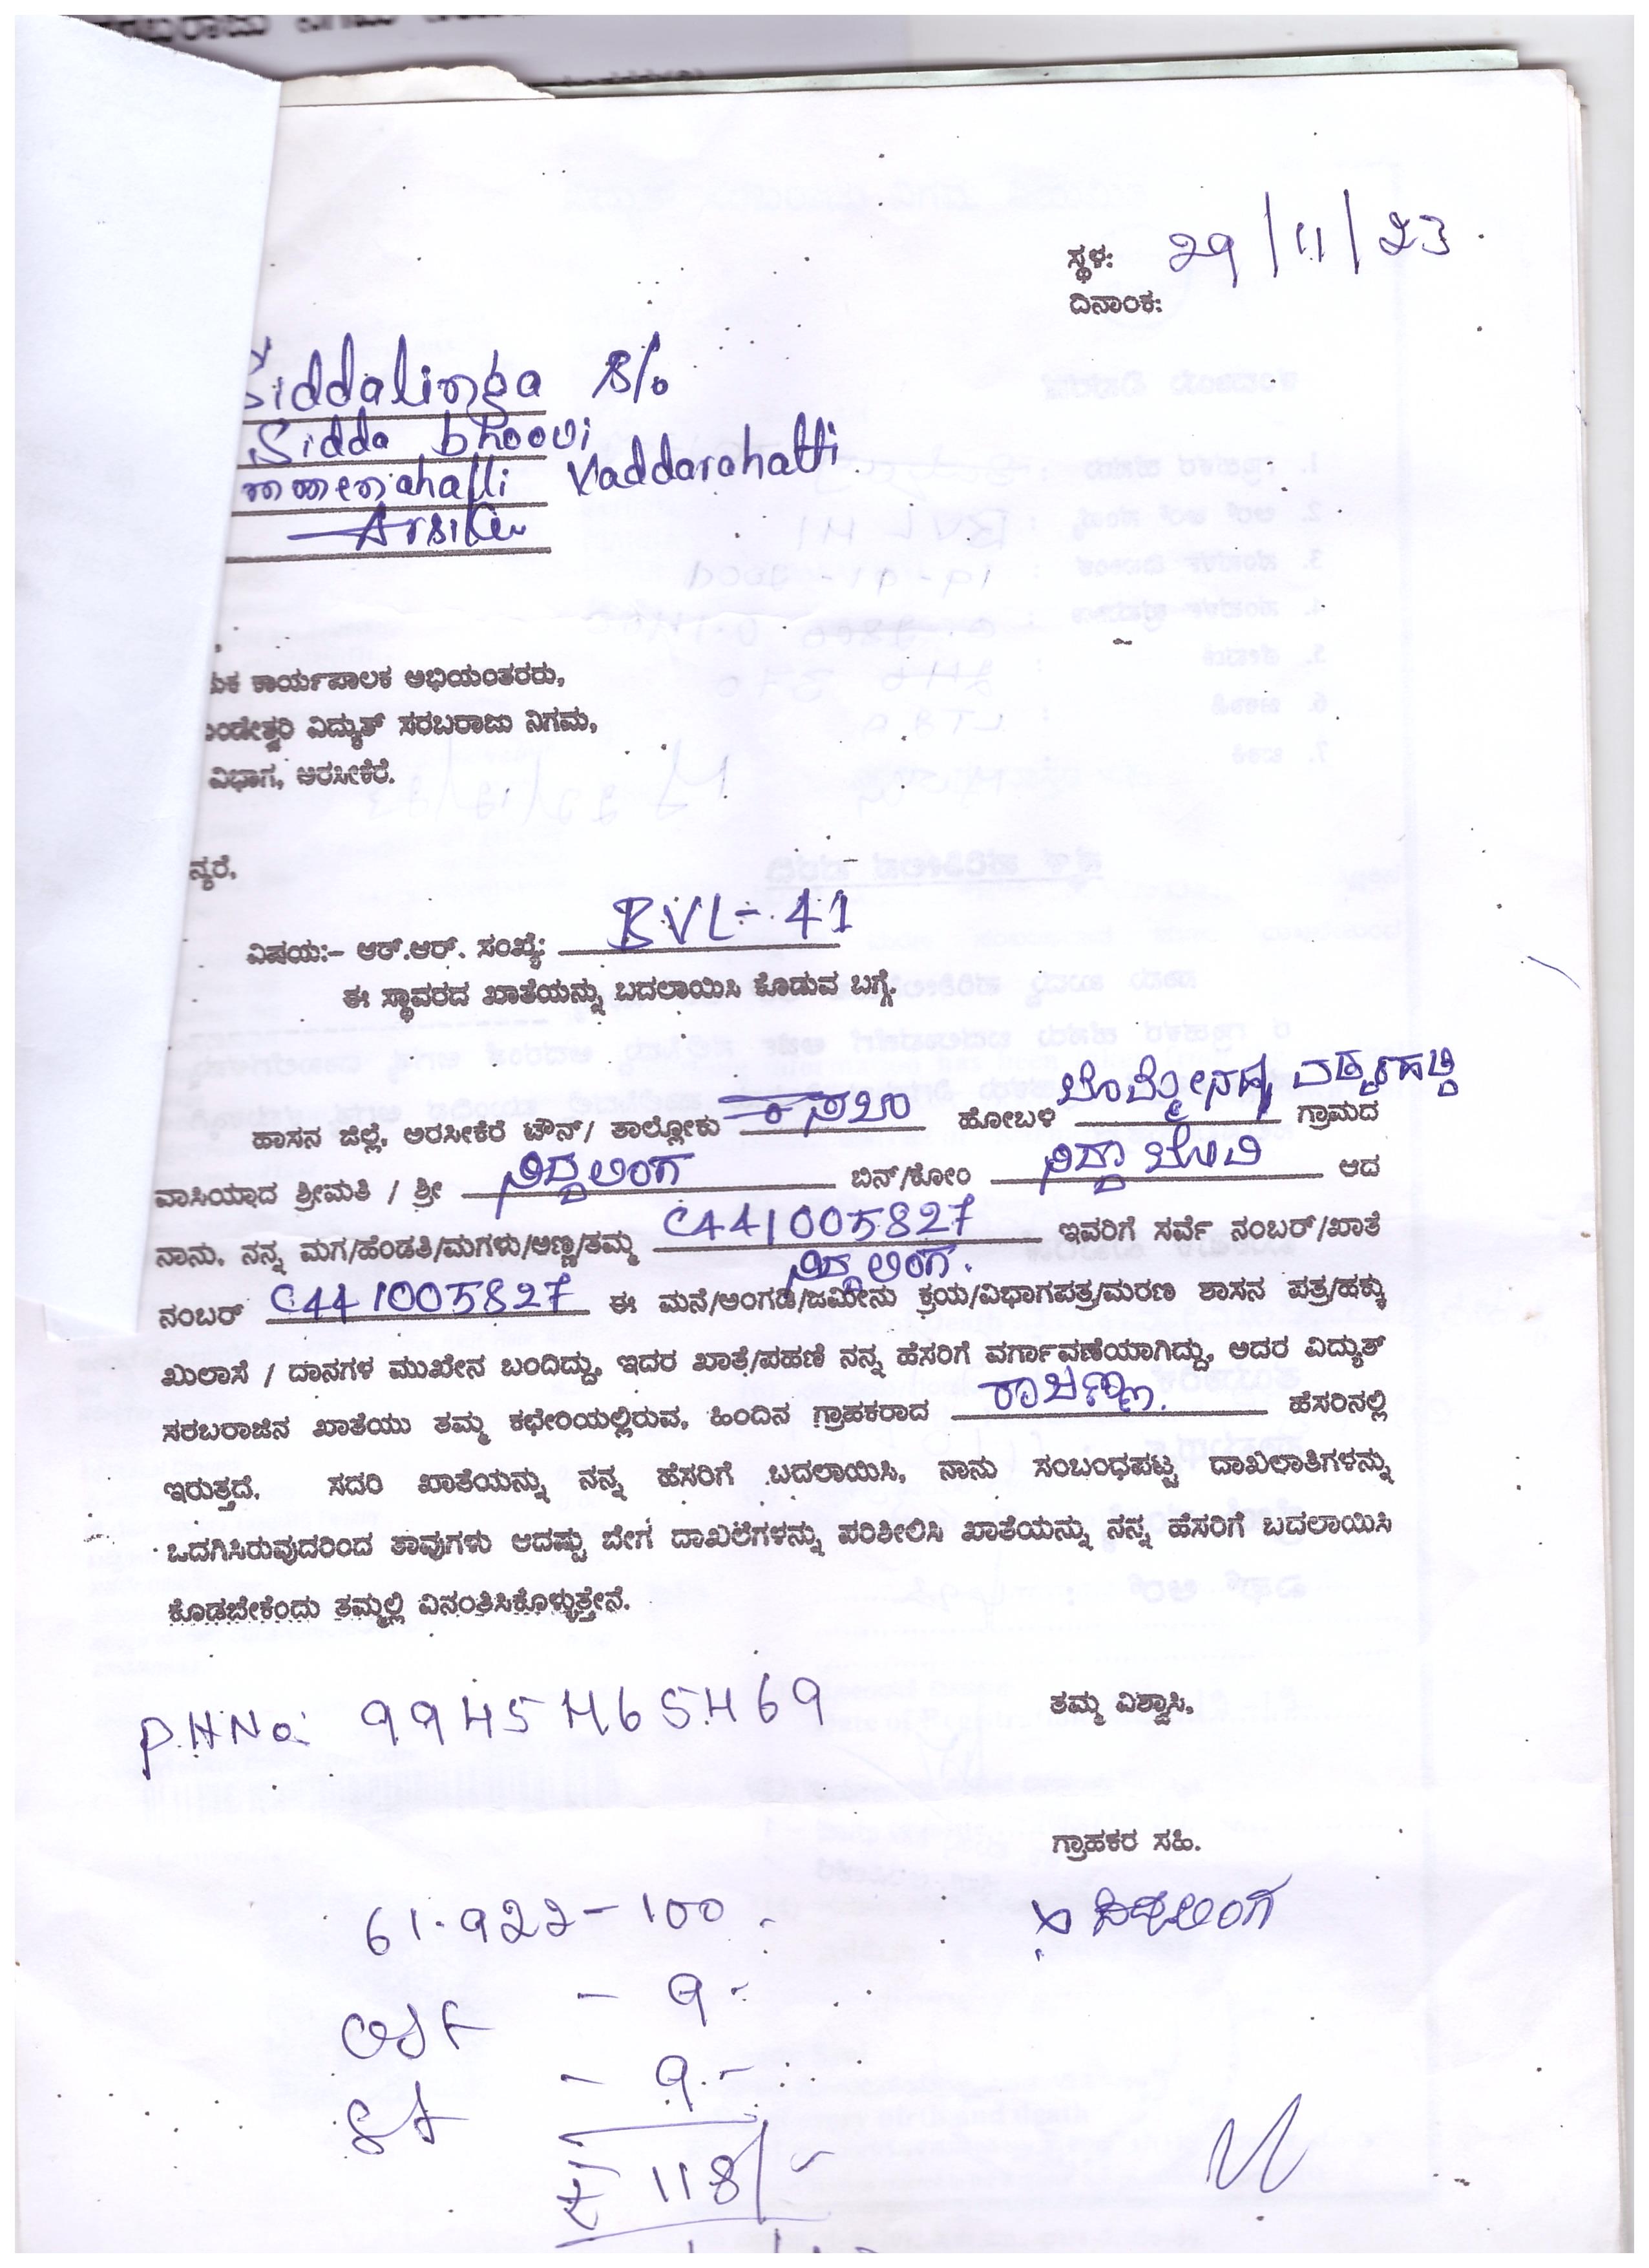 ಸ್ಥಳ: 29/11/23
ದಿನಾಂಕ:
Siddalinga S/o
Sidda bhoovi
mmenahalli Vaddarahatti
Arsike
ಕಾರ್ಯಪಾಲಕ ಅಭಿಯಂತರರು,
ವಿದ್ಯುತ್ ಸರಬರಾಜು ನಿಗಮ,
ವಿಭಾಗ, ಅರಸೀಕೆರೆ.
ನ್ಯರೆ,
ವಿಷಯ:- ಆರ್.ಆರ್. ಸಂಖ್ಯೆ: BVL-41
ಈ ಸ್ಥಾವರದ ಖಾತೆಯನ್ನು ಬದಲಾಯಿಸಿ ಕೊಡುವ ಬಗ್ಗೆ.
ಹಾಸನ ಜಿಲ್ಲೆ, ಅರಸೀಕೆರೆ ಟೌನ್/ ತಾಲ್ಲೋಕು ಕಸಬಾ ಹೋಬಳಿ ಗ್ರಾಮದ
ವಾಸಿಯಾದ ಶ್ರೀಮತಿ / ಶ್ರೀ ಸಿದ್ದಲಿಂಗ ಬಿನ್/ಕೋಂ ಸಿದ್ದಾ ಬೋವಿ ಆದ
ನಾನು, ನನ್ನ ಮಗ/ಹೆಂಡತಿ/ಮಗಳು/ಅಣ್ಣ/ತಮ್ಮ C441005827 ಇವರಿಗೆ ಸರ್ವೆ ನಂಬರ್/ಖಾತೆ
ಸಿದ್ದಲಿಂಗ.
ನಂಬರ್ C441005827 ಈ ಮನೆ/ಅಂಗಡಿ/ಜಮೀನು ಕ್ರಯ/ವಿಭಾಗಪತ್ರ/ಮರಣ ಶಾಸನ ಪತ್ರ/ಹಕ್ಕು
ಖುಲಾಸೆ / ದಾನಗಳ ಮುಖೇನ ಬಂದಿದ್ದು, ಇದರ ಖಾತೆ/ಪಹಣಿ ನನ್ನ ಹೆಸರಿಗೆ ವರ್ಗಾವಣೆಯಾಗಿದ್ದು, ಅದರ ವಿದ್ಯುತ್
ಸರಬರಾಜಿನ ಖಾತೆಯು ತಮ್ಮ ಕಛೇರಿಯಲ್ಲಿರುವ, ಹಿಂದಿನ ಗ್ರಾಹಕರಾದ ರಾಜಣ್ಣ. ಹೆಸರಿನಲ್ಲಿ
ಇರುತ್ತದೆ. ಸದರಿ ಖಾತೆಯನ್ನು ನನ್ನ ಹೆಸರಿಗೆ ಬದಲಾಯಿಸಿ, ನಾನು ಸಂಬಂಧಪಟ್ಟ ದಾಖಲಾತಿಗಳನ್ನು
ಒದಗಿಸಿರುವುದರಿಂದ ತಾವುಗಳು ಆದಷ್ಟು ಬೇಗ ದಾಖಲೆಗಳನ್ನು ಪರಿಶೀಲಿಸಿ ಖಾತೆಯನ್ನು ನನ್ನ ಹೆಸರಿಗೆ ಬದಲಾಯಿಸಿ
ಕೊಡಬೇಕೆಂದು ತಮ್ಮಲ್ಲಿ ವಿನಂತಿಸಿಕೊಳ್ಳುತ್ತೇನೆ.
P.H No: 9945465469 ತಮ್ಮ ವಿಶ್ವಾಸಿ,
ಗ್ರಾಹಕರ ಸಹಿ.
61.922-100 x ಸಿದ್ದಲಿಂಗ
- 9 -
- 9 -
₹ 118/-